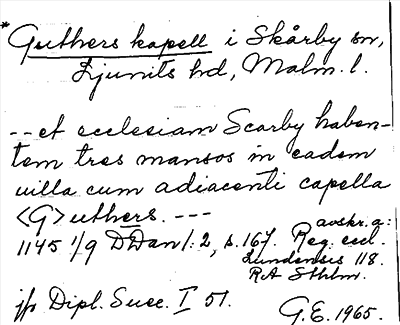 * Guthers kapell i Skårby sn,
Ljunits hd, Malm. l.
-- et ecclesiam Scarby haben-
tem tres mansos in eadem
uilla cum adiacenti capella
<G>uthers. ---
1145 1/9 DDan I:2, s. 167. avskr. a:
Reg. eccl.
Lundensis 118.
RA Sthlm.
jfr Dipl. Suec. I 51.
G.E. 1965.